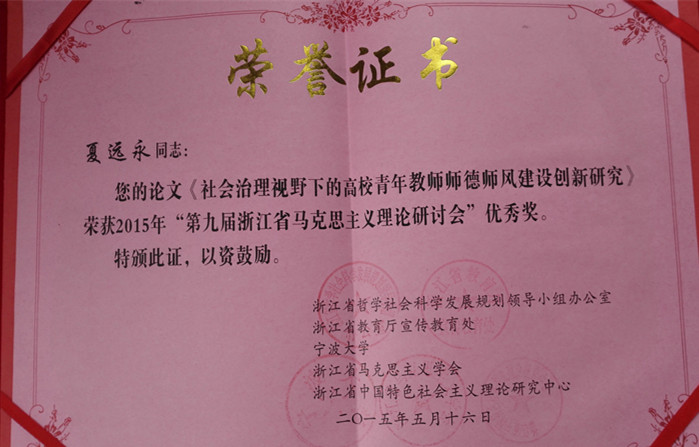 荣誉证书
夏远永同志：
您的论文《社会治理视野下的高校青年教师师德师风建设创新研究》
荣获2015年“第九届浙江省马克思主义理论研讨会”优秀奖。
特颁此证，以资鼓励。
浙江省哲学社会科学发展规划领导小组办公室
浙江省教育厅宣传教育处
宁波大学
浙江省马克思主义学会
浙江省中国特色社会主义理论研究中心
二〇一五年五月十六日